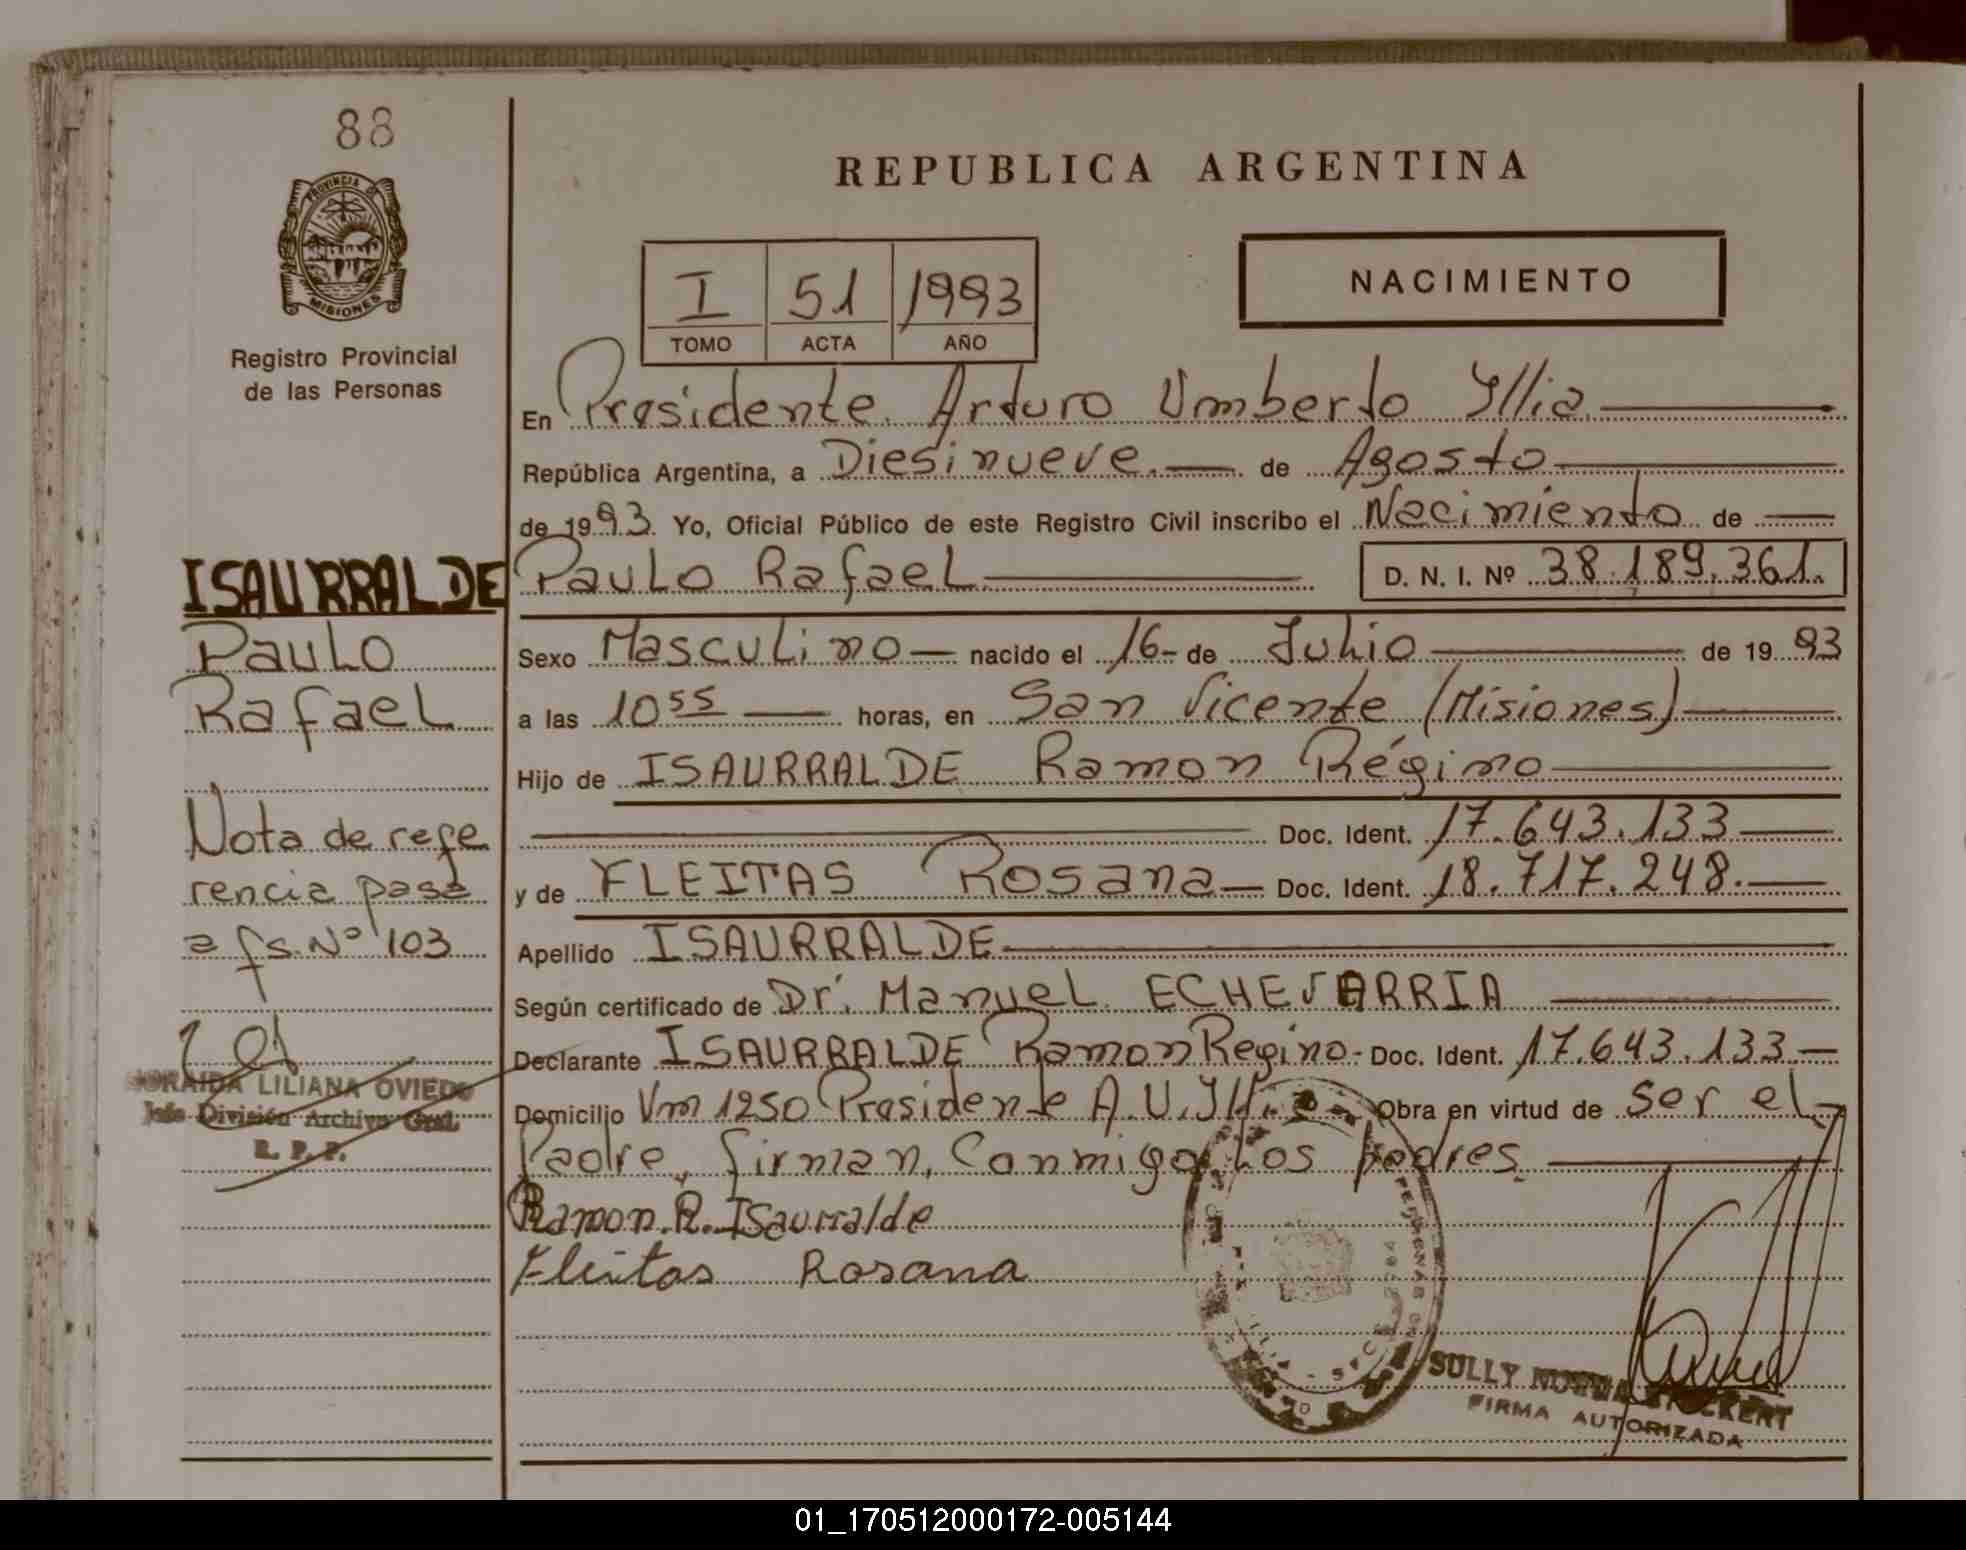 88
PROVINCIA DE
MISIONES
Registro Provincial
de las Personas
REPUBLICA ARGENTINA
I 51 1993
TOMO ACTA AÑO
NACIMIENTO
En Presidente Arturo Umberto Yllia
República Argentina, a Diesinueve. de Agosto
de 1993 Yo, Oficial Público de este Registro Civil inscribo el Nacimiento de
Paulo Rafael D. N. I. Nº 38.189.361.
Sexo Masculino nacido el 16 de Julio de 1993
a las 10 55 horas, en San Vicente (Misiones)
Hijo de ISAURRALDE Ramon Régino
Doc. Ident. 17.643.133
y de FLEITAS Rosana Doc. Ident. 18.717.248.
Apellido ISAURRALDE
Según certificado de Dr. Manuel ECHEVARRIA
Declarante ISAURRALDE Ramon Regino- Doc. Ident. 17.643.133
Domicilio Km 1250 Presidente A.U. Yllia Obra en virtud de ser el
Padre, firman, Conmigo Los padres
Ramon.R.Isaurralde
Fleitas Rosana
SULLY NORMA
FIRMA AUTORIZADA
ISAURRALDE
Paulo
Rafael
Nota de refe
rencia pasa
a fs. Nº 103
LILIANA OVIEDO
Jefe División Archivo Gral.
R. P. P.
01_170512000172-005144